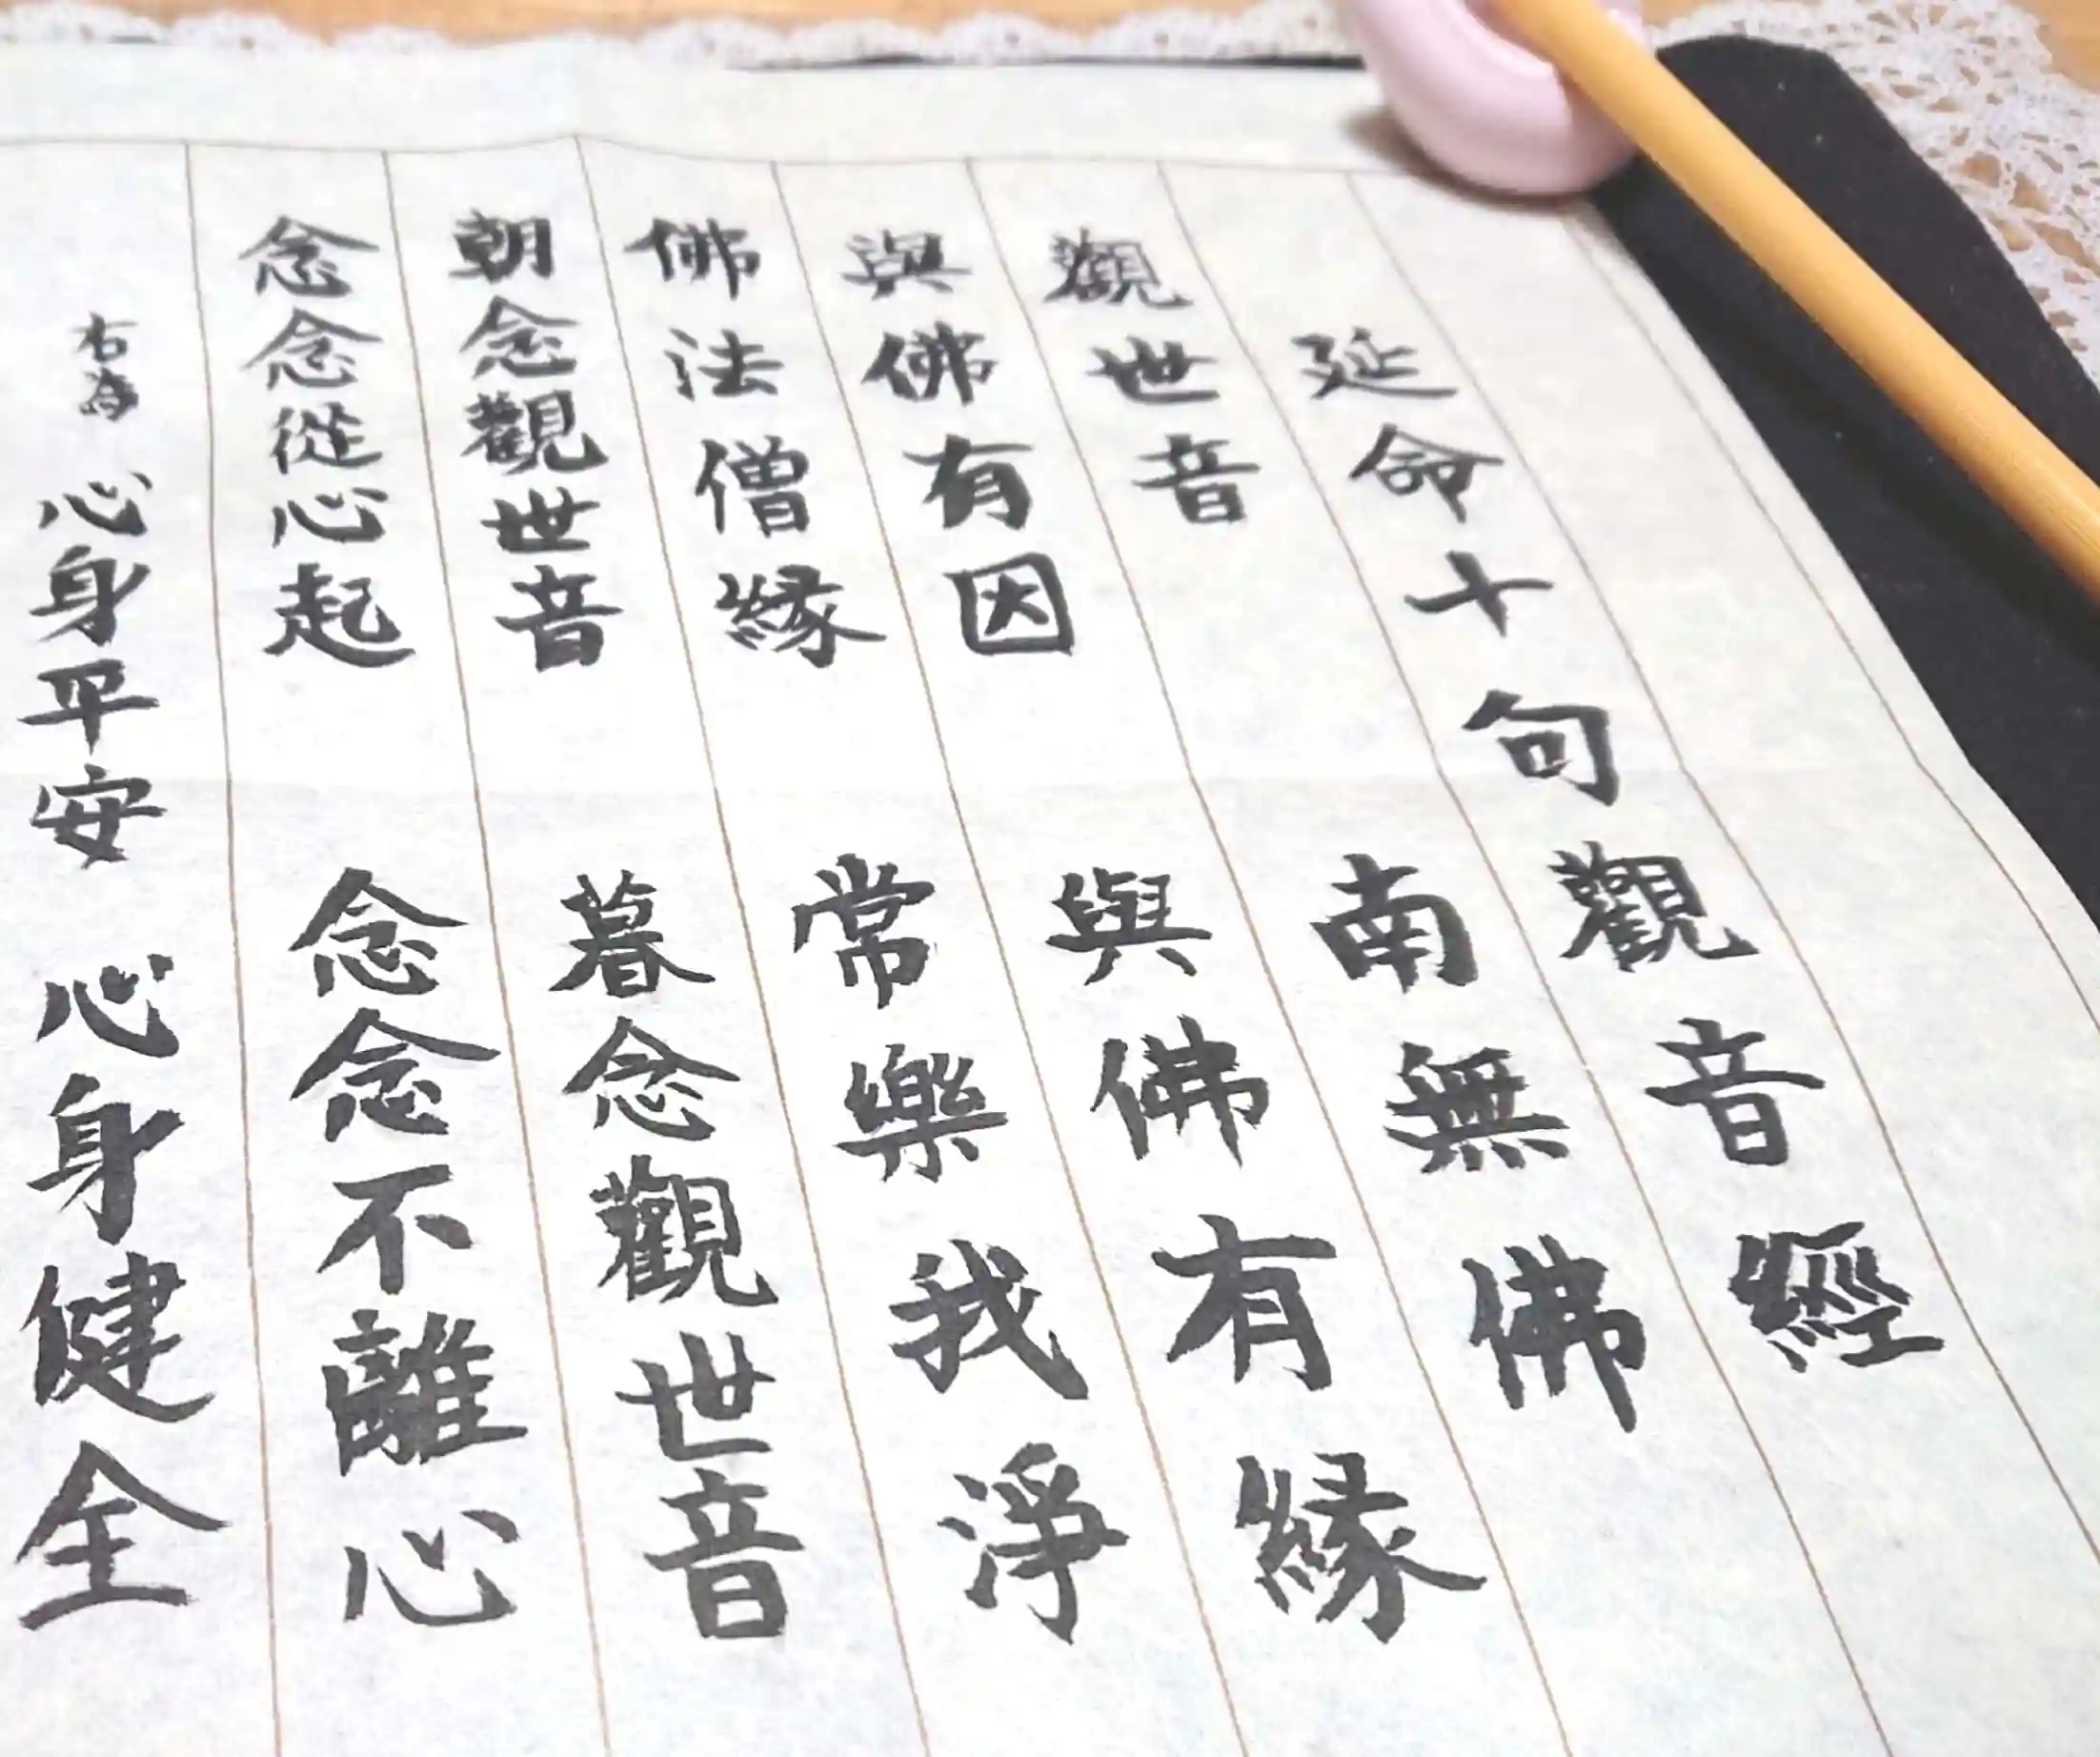 延命十句觀音經
觀世音 南無佛
與佛有因 與佛有緣
佛法僧緣 常樂我淨
朝念觀世音 暮念觀世音
念念從心起 念念不離心
右為 心身平安 心身健全